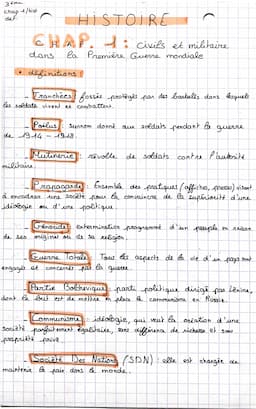 3ème
chap 1/ Hist
def
HISTOIRE
CHAP. 1 : civils et militaire
dans la Première Guerre mondiale
• définitions :
- Tranchées : fossés protégés par des barbelés dans lesquels
les soldats vivent et combattent.
- Poilus : surnom donné aux soldats pendant la guerre
de 1914 - 1918.
- Mutinerie : révolte de soldats contre l'autorité
militaire.
- Propagande : Ensemble des pratiques (affiches, presse) visant
à encadrer une société pour la convaincre de la supériorité d'une
idéologie ou d'une politique.
- Génocide : extermination programmé d'un peuple en raison
de ses origines ou de sa religion.
- Guerre Totale : Tous les aspects de la vie d'un pays sont
engagés et concernés par la guerre.
- Partie Bolchevique : parti politique dirigé par Lénine,
dont le but est de mettre en place le communisme en Russie.
- Communisme : idéologie, qui veut la création d'une
société parfaitement égalitaire, sans différence de richesse et sans
propriété privé.
- Société Des Nations (SDN) : elle est chargée de
maintenir la paix dans le monde.